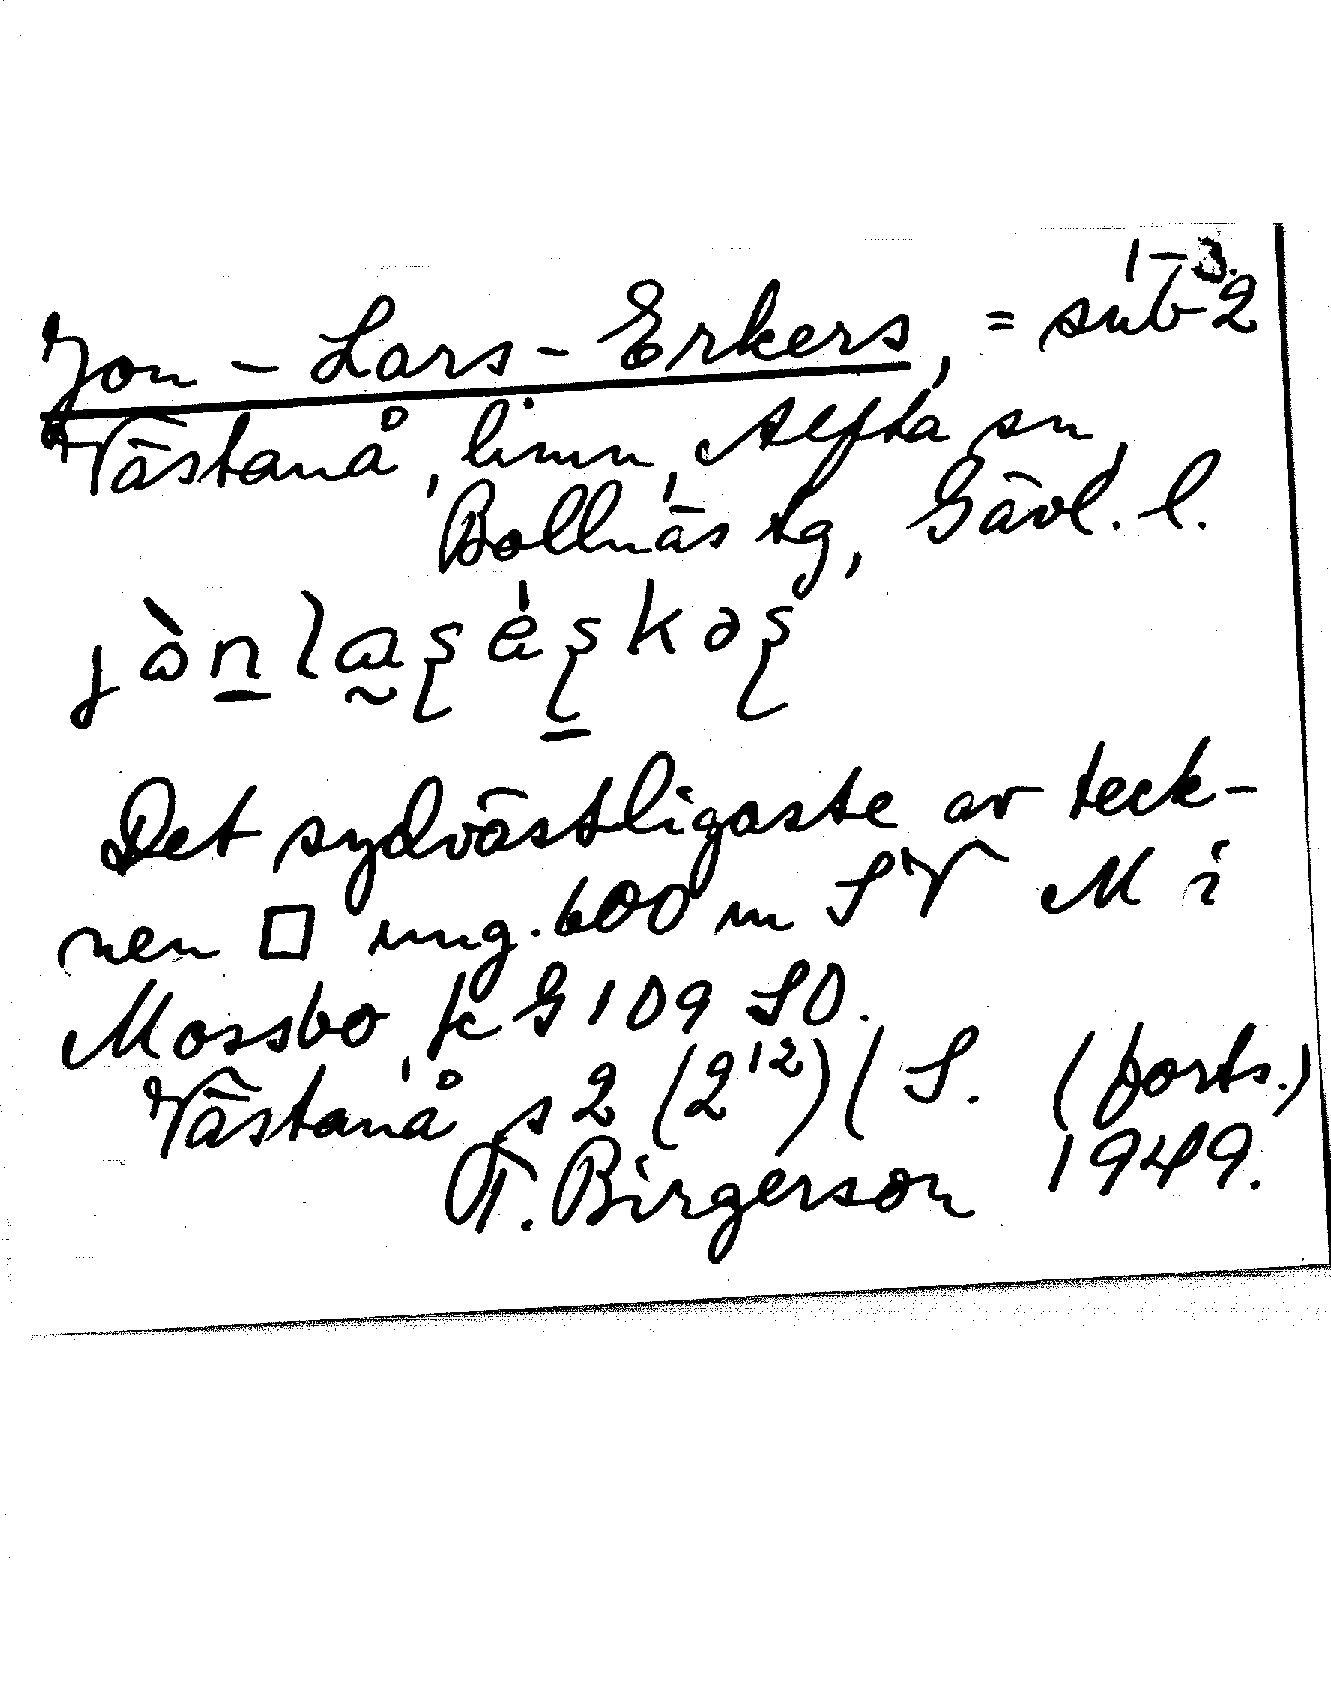 1-3.
Jon-Lars-Erkers, = sub 2
Västanå, limn, Alfta sn,
Bollnäs tg, Gävl. l.
Det sydvästligaste av teck-
nen □ ung. 600 m SV M i
Mossbo, k G 109 SO.
Västanå s 2 (2¹²) ( S. (forts.)
T. Birgerson 1949.